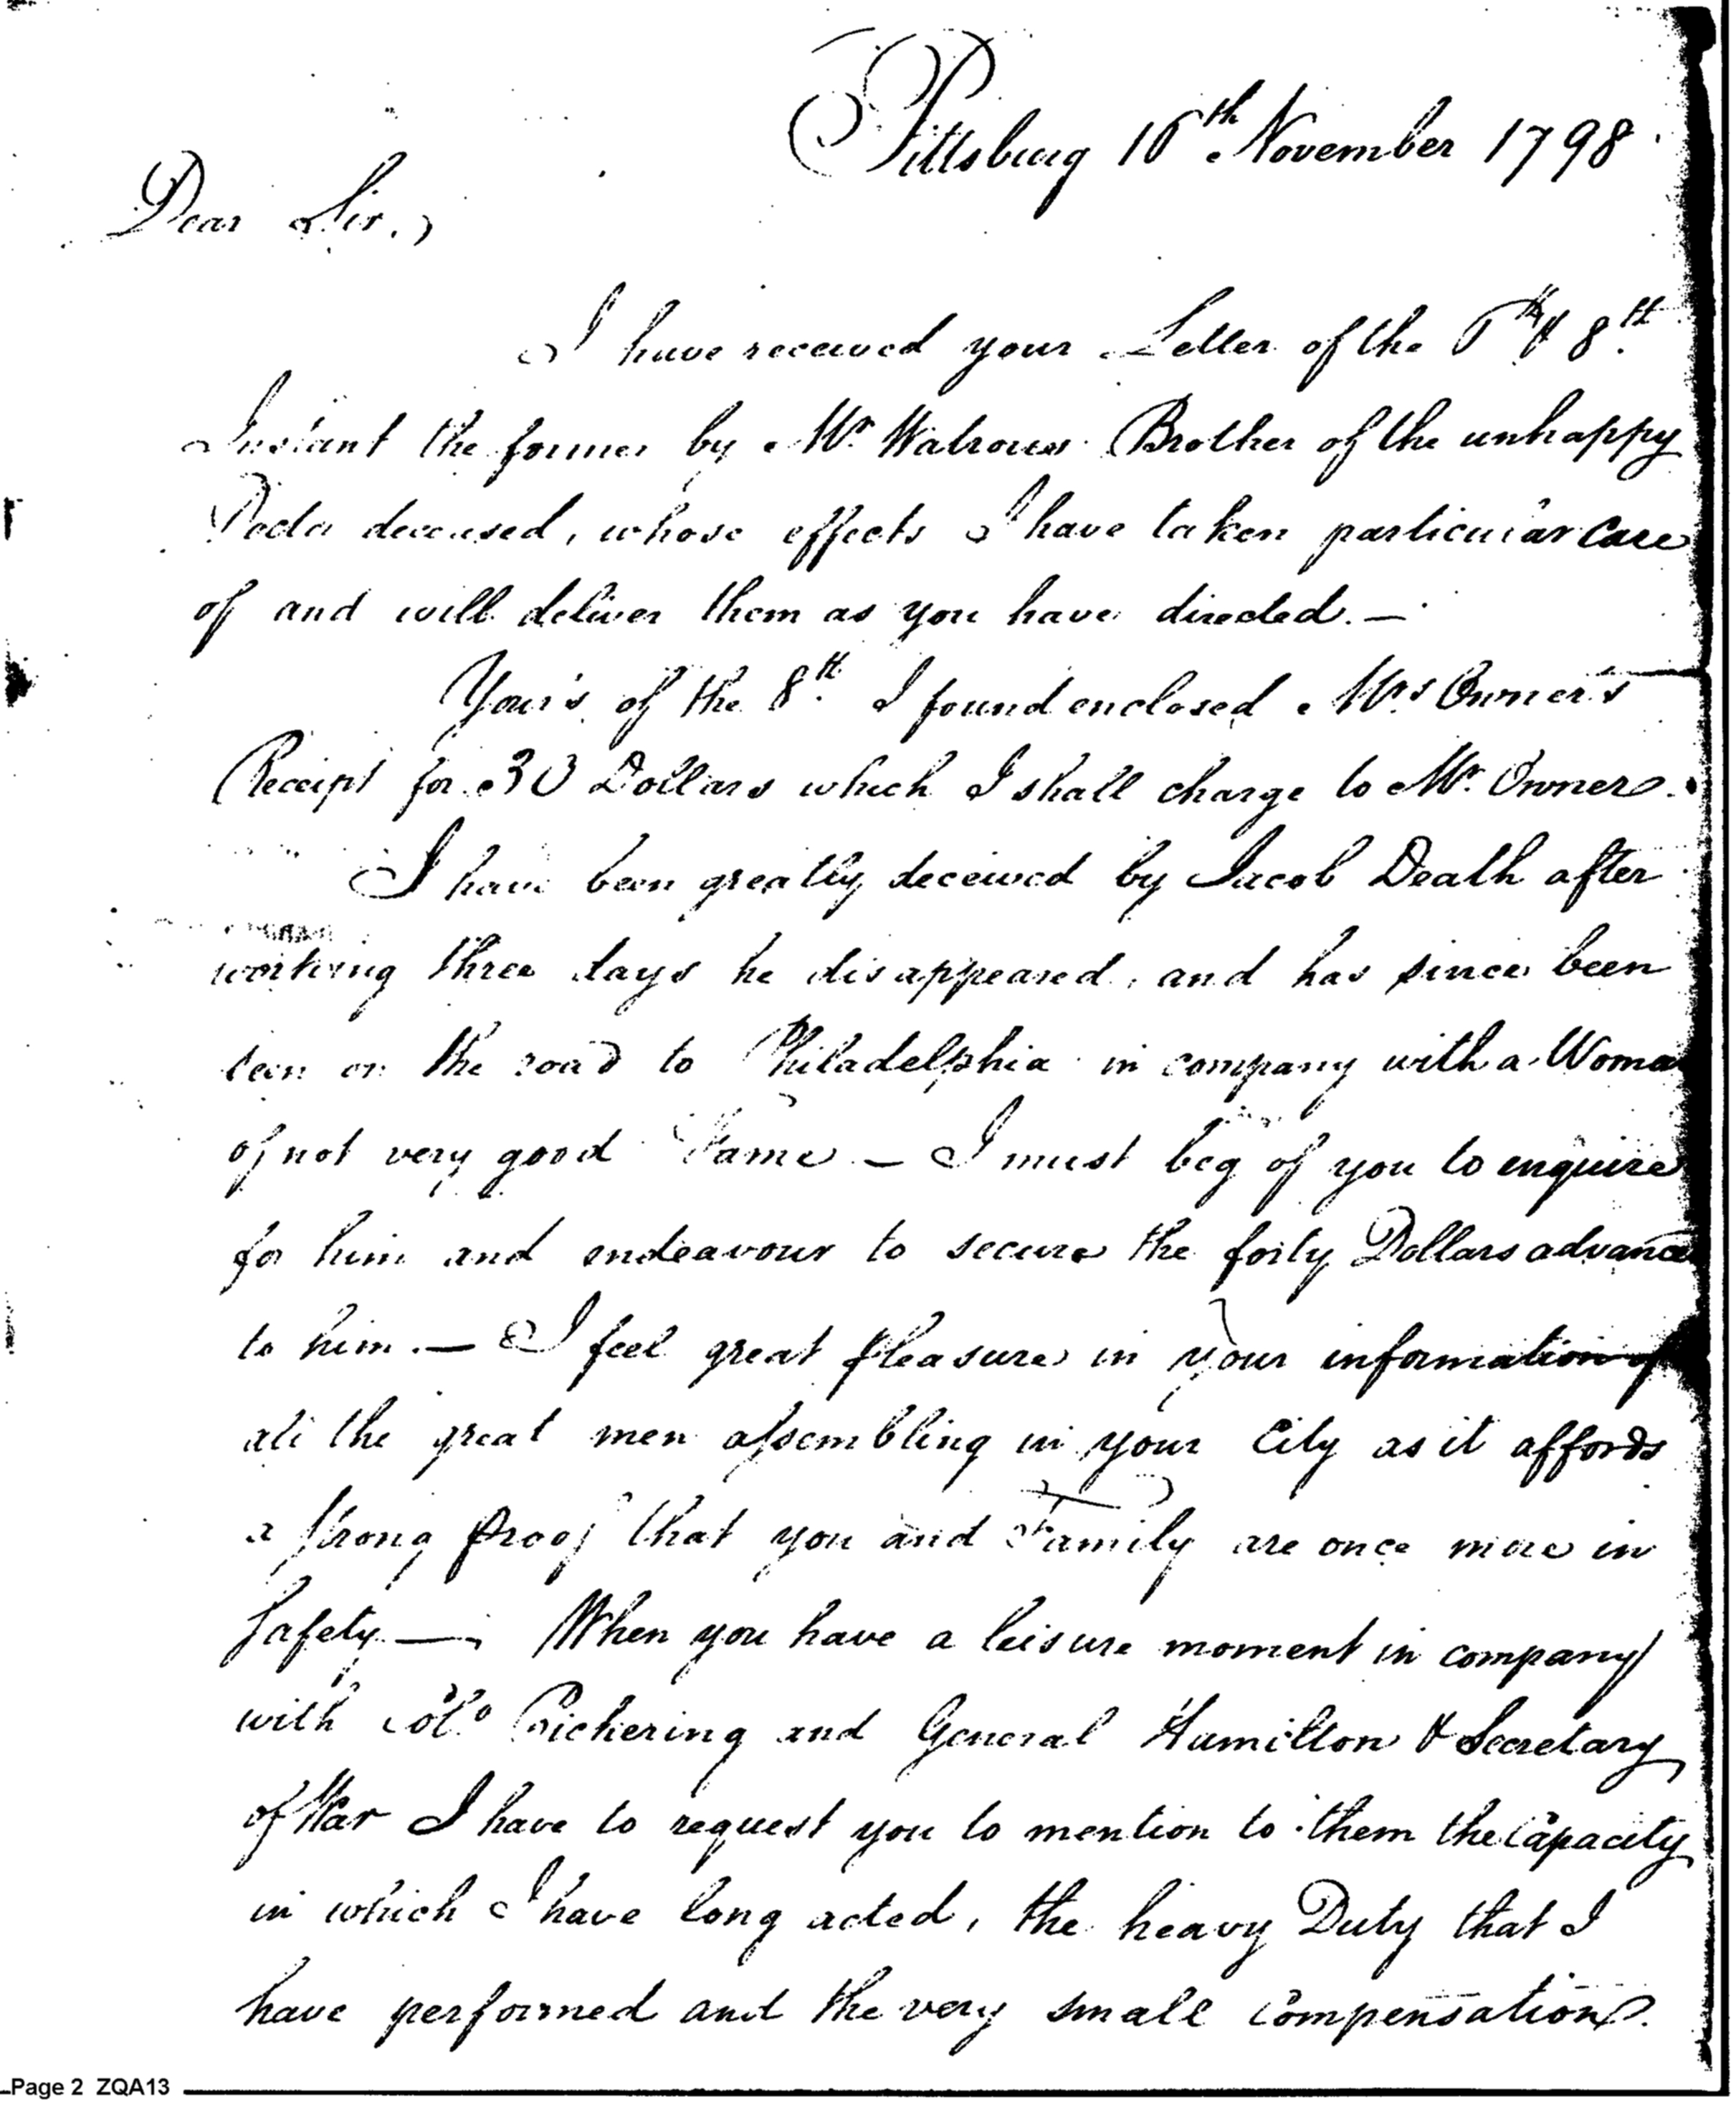 Pittsburg 16th November 1798
Dear Sir,
I have received your Letter of the & 8th
Instant the former by Mr Watrous Brother of the unhappy
Doctor deceased, whose effects I have taken particular care
of and will deliver them as you have directed. —
Your's of the 8th I found enclosed Mrs Owner's
Receipt for 30 Dollars which I shall charge to Mr Owner.
I have been greatly deceived by Jacob Death after
working three days he disappeared, and has since been
seen on the road to Philadelphia in company with a Woman
of not very good Fame — I must beg of you to enquire
for him and endeavour to secure the forty Dollars advance
to him. — I feel great pleasure in your information of
all the great men assembling in your City as it affords
a strong proof that you and Family are once more in
Safety — When you have a leisure moment in company
with Colo Pickering and General Hamilton & Secretary
of War I have to request you to mention to them the Capacity
in which I have long acted, the heavy Duty that I
have performed and the very small Compensation.
Page 2 ZQA13